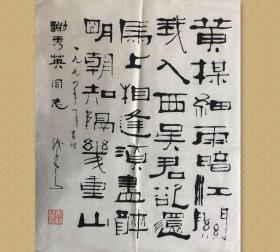 黄楳細雨暗江關
我入西吴君欲還
馬上相逢須盡
明朝知隔幾重山
謝秀英同志